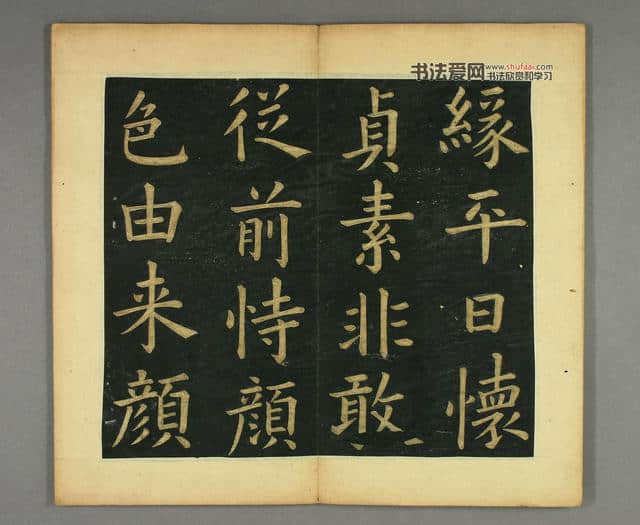 书法爱网
www.shufaai.com
书法欣赏和学习
緣平日懷
貞素非敢
從前恃顔
色由来顔